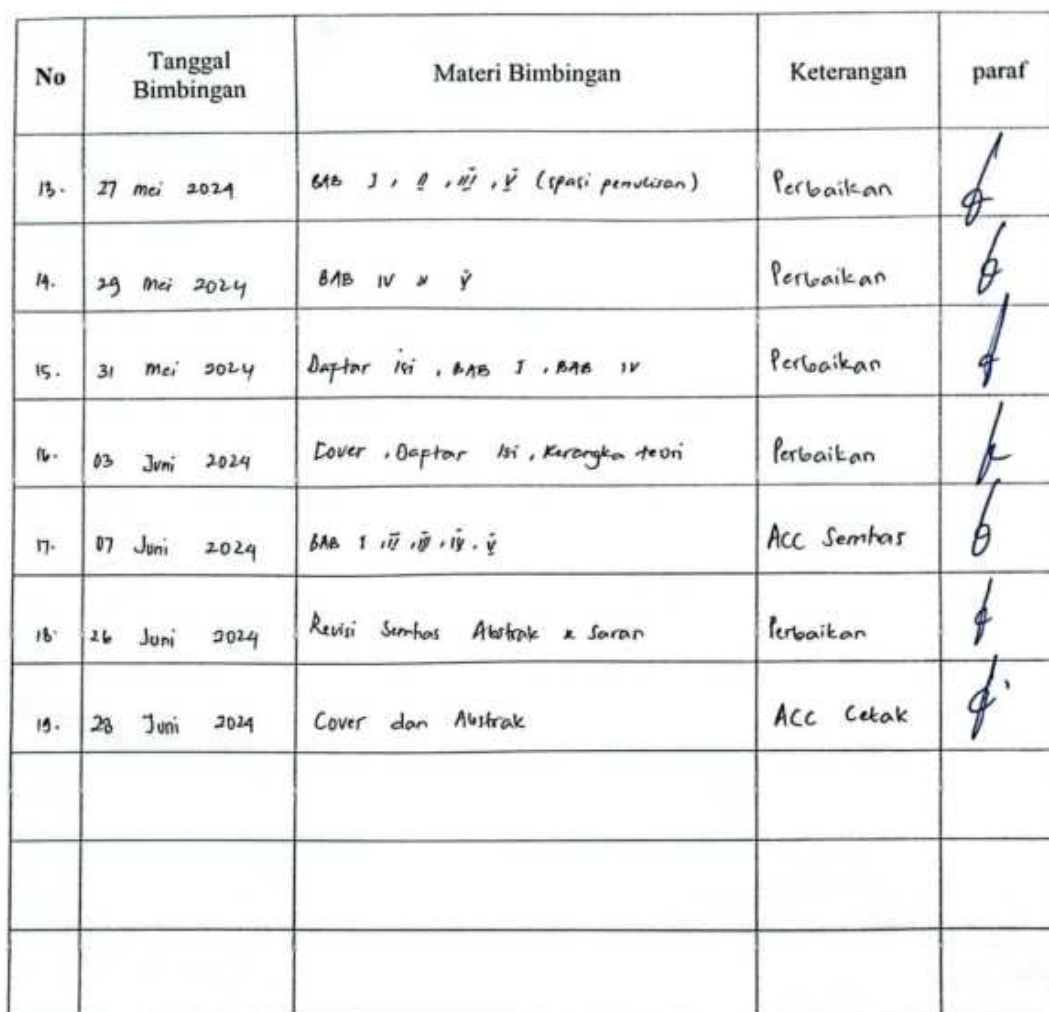 No Tanggal Bimbingan Materi Bimbingan Keterangan paraf
13. 27 mei 2024 BAB I, II, III, V (spasi penulisan) Perbaikan
14. 29 Mei 2024 BAB IV & V Perbaikan
15. 31 Mei 2024 Daftar isi, BAB I, BAB IV Perbaikan
16. 03 Juni 2024 Cover, Daftar Isi, Kerangka teori Perbaikan
17. 07 Juni 2024 BAB I, II, III, IV, V ACC Semhas
18. 26 Juni 2024 Revisi Semhas Abstrak & Saran Perbaikan
19. 28 Juni 2024 Cover dan Abstrak ACC Cetak